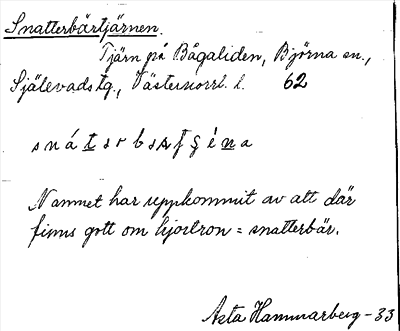 Snatterbärtjärnen.
Tjärn på Bågaliden, Björna sn.,
Själevads tg., Västernorrl. l. 62
Namnet har uppkommit av att där
finns gott om hjortron = snatterbär.
Asta Hammarberg - 33